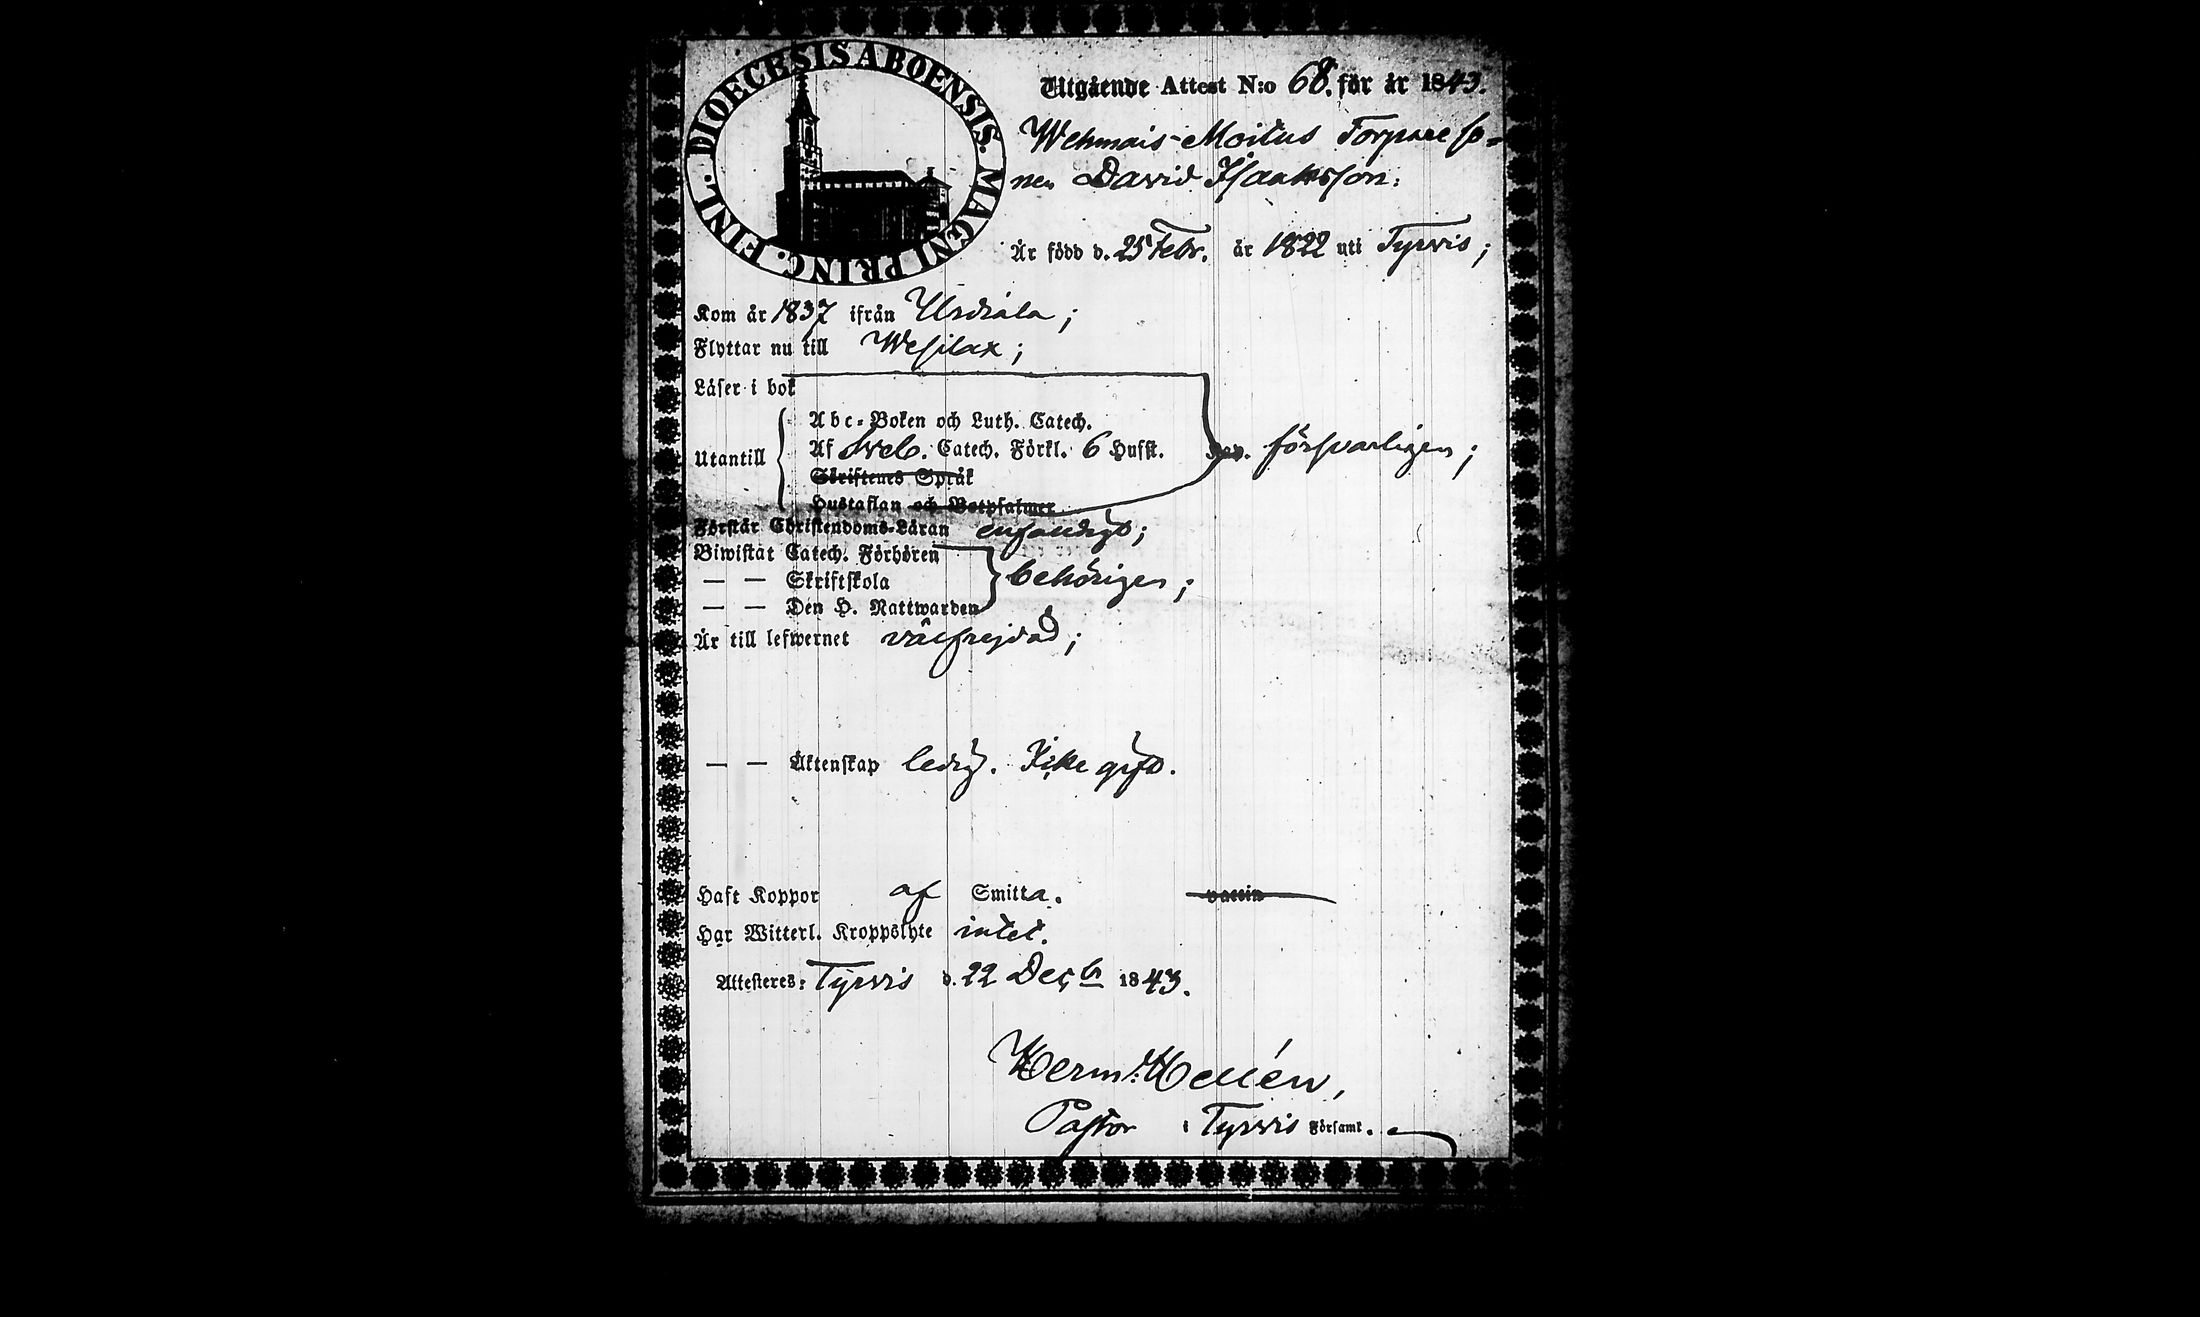 DIOECESIS ABOENSIS. MAGNI PRINC. FINL.
Utgående Attest N:o 68. för år 1843.
Wehmais-Moitus Torpare so=
nen David Isaaksson:
Är född d. 25 Febr. år 1822 uti Tyrvis;
Kom år 1837 ifrån Urdiala;
Flyttar nu till Wesilax;
Läser i bok
Abc-Boken och Luth. Catech.
Utantill Af Sveb. Catech. Förkl. 6 Hufst. försvarligen;
Skriftenes Språk
Hustaflan och Botpsalmer
Förstår Christendoms-Läran enfaldigt;
Biwistat Catech. Förhören
— — Skriftskola behörigen;
— — Den H. Nattwarden
Är till lefwernet välfrejdad;
— — Äktenskap ledig. Icke gift.
Haft Koppor af Smitta. vaccin
Har Witterl. Kroppslyte intet.
Attesteres: Tyrvis d. 22 Decbr 1843.
Herm: Hellén,
Pastor i Tyrvis Församl.